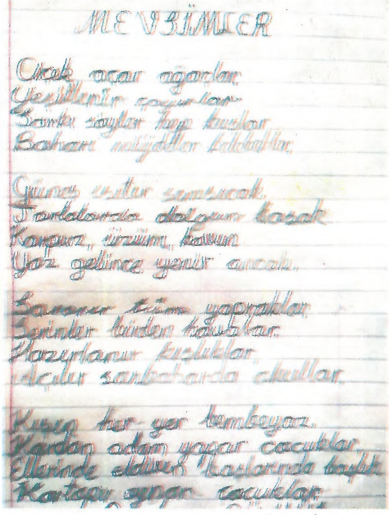 MEVSİMLER
Çiçek açar ağaçlar
Yeşillenir çayırlar
Şarkı söyler hep kuşlar
Baharı müjdeler kelebekler.
Güneş ısıtır sımsıcak.
Tarlalarda dolgun başak
Karpuz, üzüm, kavun
Yaz gelince yenir ancak.
Sararır tüm yapraklar
Serinler birden havalar.
Hazırlanır kışlıklar.
Açılır sonbaharda okullar.
Kışın her yer bembeyaz.
Kardan adam yapar çocuklar.
Ellerinde eldiven başlarında başlık
Kartopu oynar çocuklar